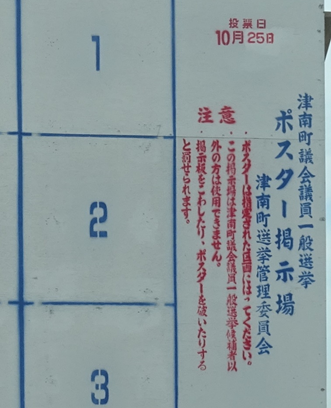 津南町議会議員一般選挙
ポスター掲示場
津南町選挙管理委員会
投票日
10月25日
注意
・ポスターは指定された区画にはってください。
・この掲示場は津南町議会議員一般選挙候補者以
外の方は使用できません。
・掲示板をこわしたり、ポスターを破いたりする
と罰せられます。
1
2
3